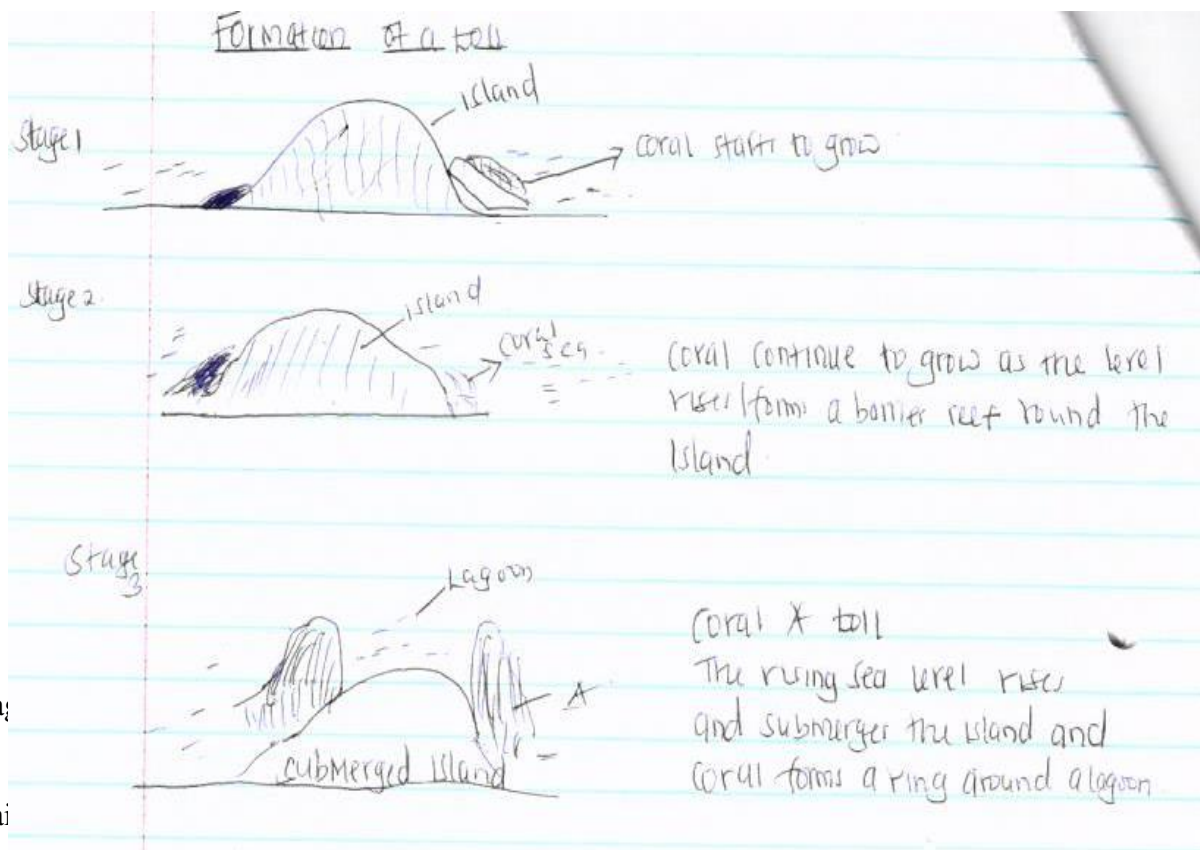 Formation of a toll
Island
Stage 1
coral starts to grow
Stage 2.
island
coral
sea
coral continue to grow as the level
rises/forms a barrier reef round the
Island
Stage
3
Lagoon
A
submerged island
Coral A toll
The rising sea level rises
and submerges the island and
coral forms a ring around a lagoon